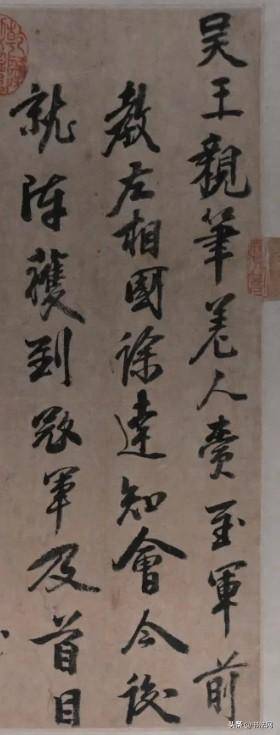 吴王親筆差人賫至軍前
教左相國徐達知會今後
就陣獲到寇軍及首目
头条 @书法网